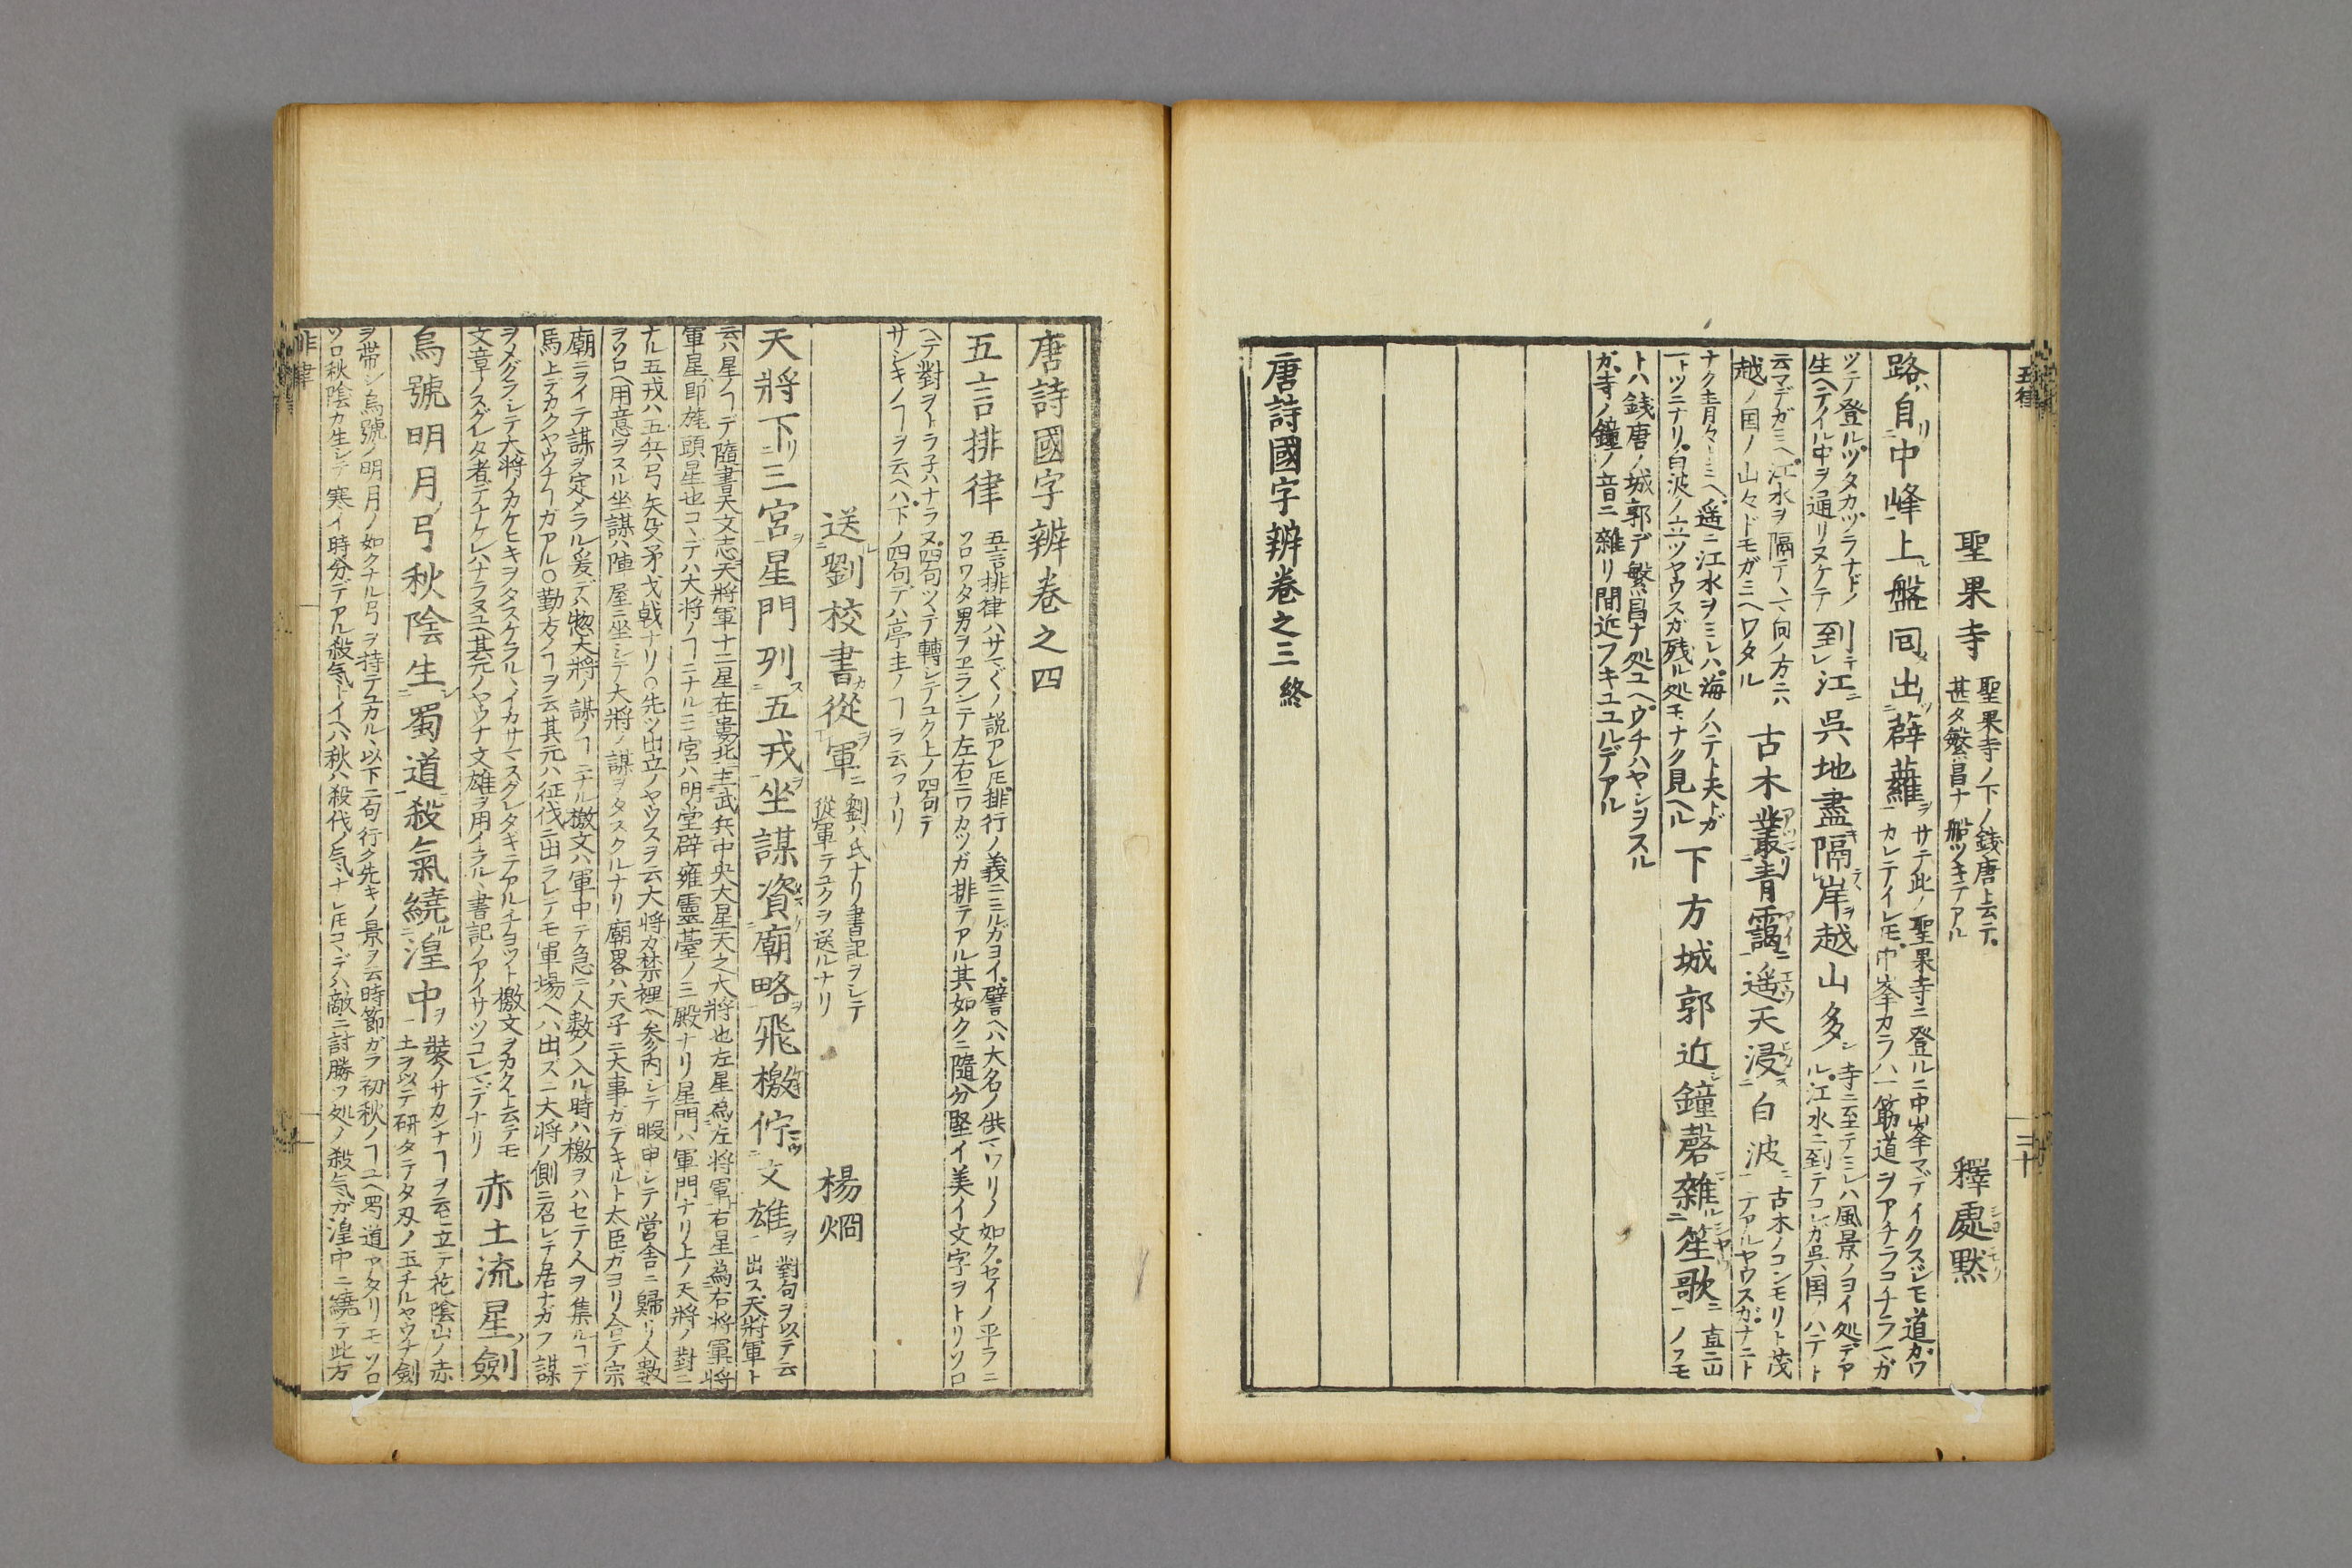 五律
二十
聖果寺 聖果寺ノ下ノ錢唐ト云テ 釋處默
甚タ繁昌ナ船ツキテアル
路自中峰上盤囘出薜蘿 サテ此ノ聖果寺ニ登ルニ中峯マデイクスヂモ道ガワ
カレテイレモ中峯カラハ一筋道ヲアチラコチラマガ
ツテ登ルツタカヅラナドノ
生ヘテイル中ヲ通リヌケテ 到江呉地盡隔岸越山多 寺ニ至テミレハ風景ノヨイ処デア
ル江水ニ到テコレガ呉国ノハテト
云マデガミヘ江水ヲ隔テヽ向ノ方ニハ
越ノ国ノ山々ドモガミヘワタル 古木叢青靄遥天浸白波 古木ノコンモリト茂
テアルヤウスガナニト
ナク青々トミヘ遥ニ江水ヲミレハ海ノハテト天トガ
一トツニナリ白波ノ立ツヤウスガ残ル処モナク見ヘル 下方城郭近鐘磬雜笙歌 直ニ山
ノフモ
トハ錢唐ノ城郭デ繁昌ナ処ユヘウチハヤシヲスル
ガ寺ノ鐘ノ音ニ雜リ間近フキユユルデアル
唐詩國字辨卷之三終
唐詩國字辨卷之四
五言排律 五言排律ハサマ〴〵ノ説アレ𪜈排行ノ義ニミルガヨイ譬ヘハ大名ノ供マワリノ如クセイノ平ラニ
ソロワタ男ヲヱランテ左右ニワカツガ排テアル其如クニ隨分堅イ美イ文字ヲトリソロ
ヘテ對ヲトラ子ハナラヌ四句ツヽテ轉シテユク上ノ四句デ
サシキノヿヲ云ヘハ下ノ四句デハ亭主ノヿヲ云フナリ
送劉校書從軍 劉ハ氏ナリ書記ヲシテ 楊烱
從軍テユクヲ送ルナリ
天將下三宮星門列五戎坐謀資廟略飛檄佇文雄 對句ヲ以テ云
出ス天將軍ト
云ハ星ノヿデ隨書天文志天將軍十二星在婁北主武兵中央大星天之大將也左星為左將軍右星為右將軍將
軍星即旄頭星也コヽデハ大将ノヿニナル三宮ハ明堂辟雍靈臺ノ三殿ナリ星門ハ軍門ナリ上ノ天將ノ對ニ
ナル五戎ハ五兵弓矢殳矛戈戟ナリ○先ツ出立ノヤウスヲ云大将カ禁裡ヘ参内シテ暇申シテ営舎ニ歸リ人数
ヲソロヘ用意ヲスル坐謀ハ陣屋ニ坐シテ大將ノ謀ヲタスクルナリ廟畧ハ天子ニ大事ガデキルト太臣ガヨリ合テ宗
廟ニヲイテ謀ヲ定メラル爰デハ惣大將ノ謀ノヿニナル檄文ハ軍中テ急ニ人数ノ入ル時ハ檄ヲハセテ人ヲ集ルヿデ
馬上デカクヤウナヿガアル○勤方ノヿヲ云其元ハ征伐ニ出ラレテモ軍場ヘハ出ズニ大将ノ側ニ召レテ居ナガフ謀
ヲメグラシテ大將ノカケヒキヲタスケラルヽイカサマスグレタキテアルイチヨツト檄文ヲカクト云テモ
文章ノスグレタ者デナケレハナラヌユヘ甚元ノヤウナ文雄ヲ用イラルヽ書記ノアイサツコレマデナリ 赤土流星劍
烏號明月弓秋陰生蜀道殺氣繞湟中 裝ノサカンナヿヲ云立テ花陰山ノ赤
土ヲ以テ研タテタ刄ノ玉チルヤウナ劍
ヲ帶シ烏號ノ明月ノ如クナル弓ヲ持テユカルヽ以下二句行ク先キノ景ヲ云時節ガラ初秋ノヿユヘ蜀道ヤタリモソロ
ソロ秋陰カ生レテ寒イ時分デアル殺気トイヘハ秋ハ殺伐ノ気ナレ𪜈コヽデハ敵ニ討勝フ処ノ殺気ガ湟中ニ繞テ此方
排律